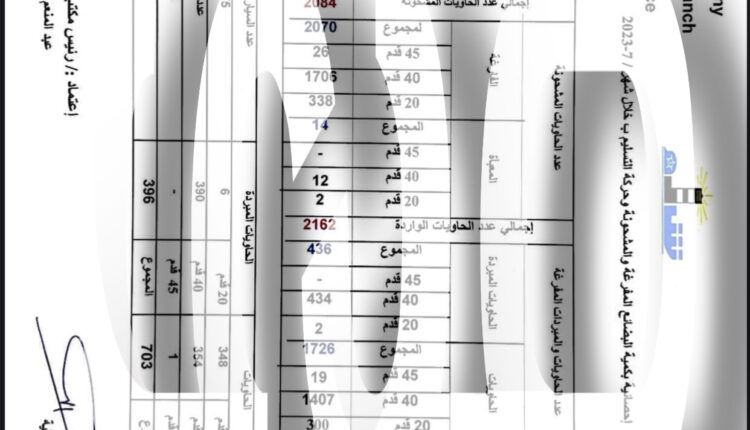 ny
nch
ce
إحصائية بكمية البضائع المفرغة والمشحونة وحركة التسليم ب خلال شهر / 7-2023
إجمالي عدد الحاويات المشحونة 2084
عدد الحاويات المشحونة
الفارغة
المجموع 2070
45 قدم 26
40 قدم 1706
20 قدم 338
المعبأة
المجموع 14
45 قدم -
40 قدم 12
20 قدم 2
إجمالي عدد الحاويات الواردة 2162
عدد الحاويات والمبردات المفرغة
الحاويات المبردة
المجموع 436
45 قدم -
40 قدم 434
20 قدم 2
الحاويات
المجموع 1726
45 قدم 19
40 قدم 1407
20 قدم 300
الحاويات الحاويات المبردة عدد
348 20 قدم 6
354 40 قدم 390
1 45 قدم -
703 المجموع 396
إعتماد :/ رئيس مكتب
عبد المنعم